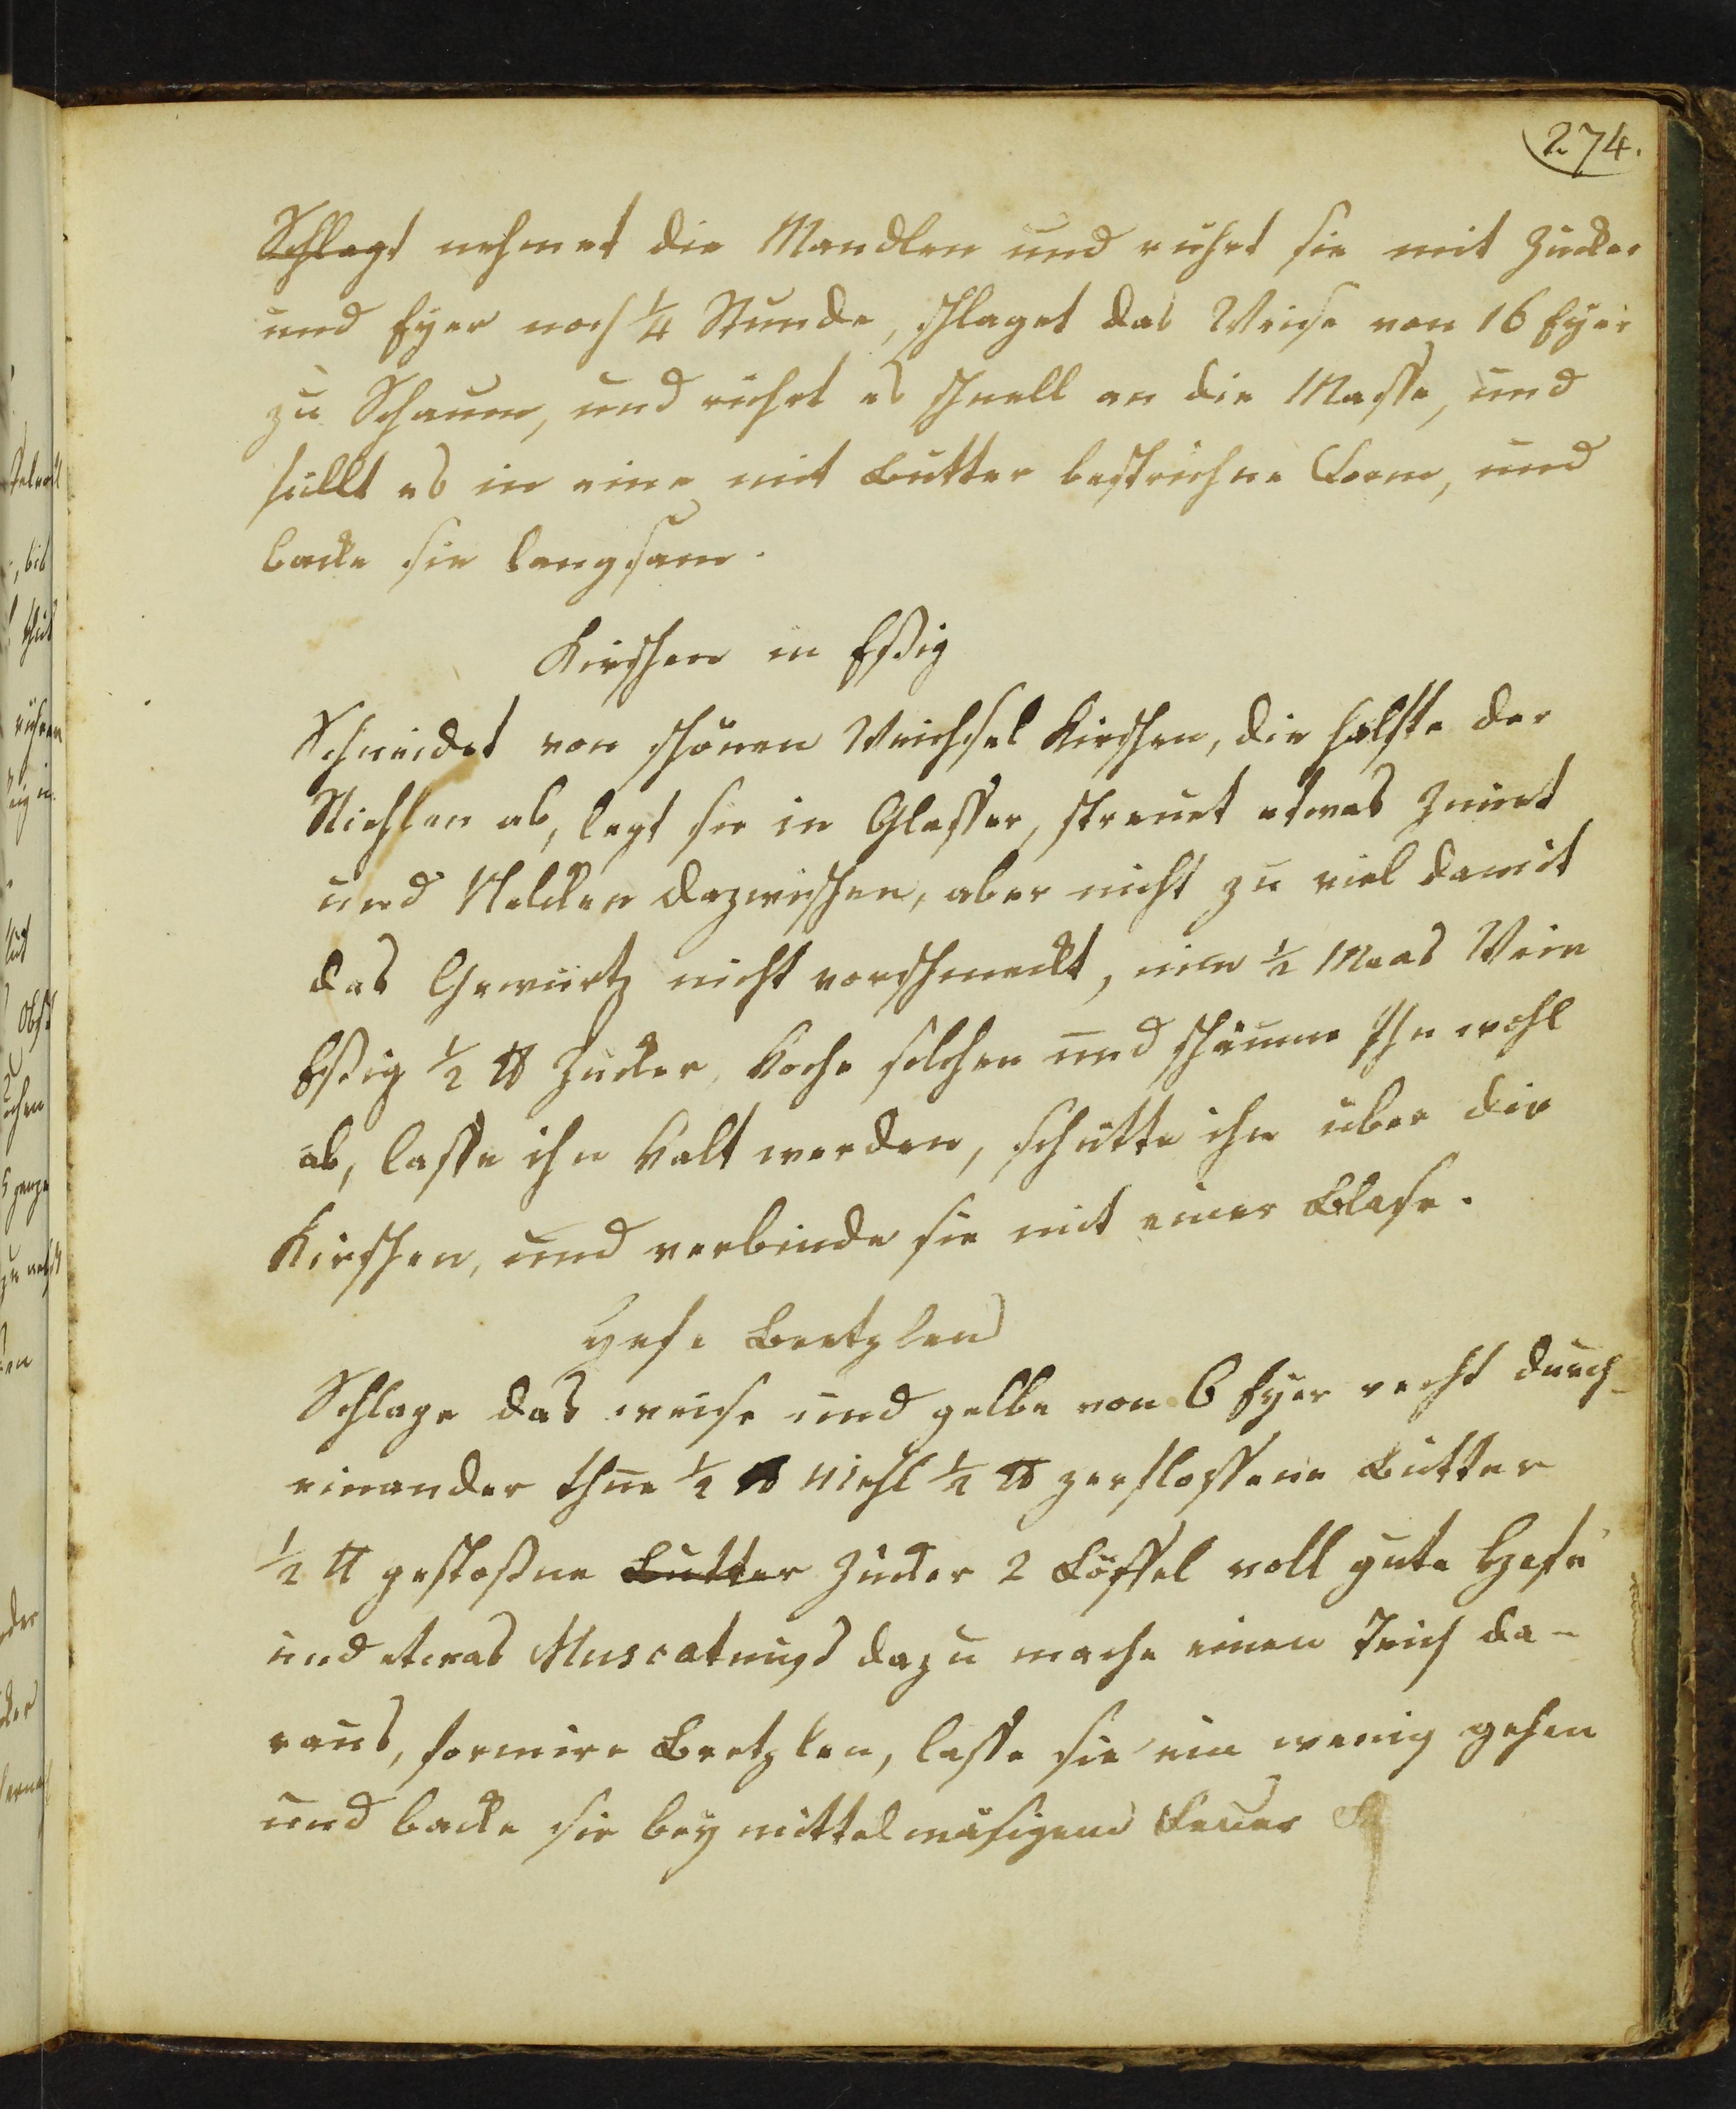 274.
Schlagt nehmet die Mandlen und rührt sie mit Zucker
und Eyer noch ¼ Stunde, schlaget das Weise von 16 Eyer
zu Schaum, und rührt es schnell an die Masse, und
füllt es in eine mit Butter bestrichne Form, und
backe sie langsam.
Kirschen in Eßig
Schneidet von schönen Weichsel Kirschen, die Helfte der
Stiehlen ab, legt sie in Glesser, streuet etwas Zimet
und Nelcken dazwischen, aber nicht zu viel damit
das Gewürtz nicht vorschmeckt, nim ½ Maas Wein
Eßig ½ ℔ Zucker, koche solchen und schäume Ihn wohl
ab, lasse ihn kalt werden, schütte ihn über die
Kirschen, und verbinde sie mit einer Blase.
Hefe Bretzlen
Schlage das weise und gelbe von 6 Eyer recht durch-
einander thue ½ ℔ Mehl ½ ℔ zerflossene Butter
½ ℔ gestoßne Butter Zucker 2 Löffel voll gute Hefe
und etwas Muscatnuß dazu mache einen Teich da-
raus, formire Bretzlen, lasse sie ein wenig gehen
und backe sie bey mittelmäsigem Feuer